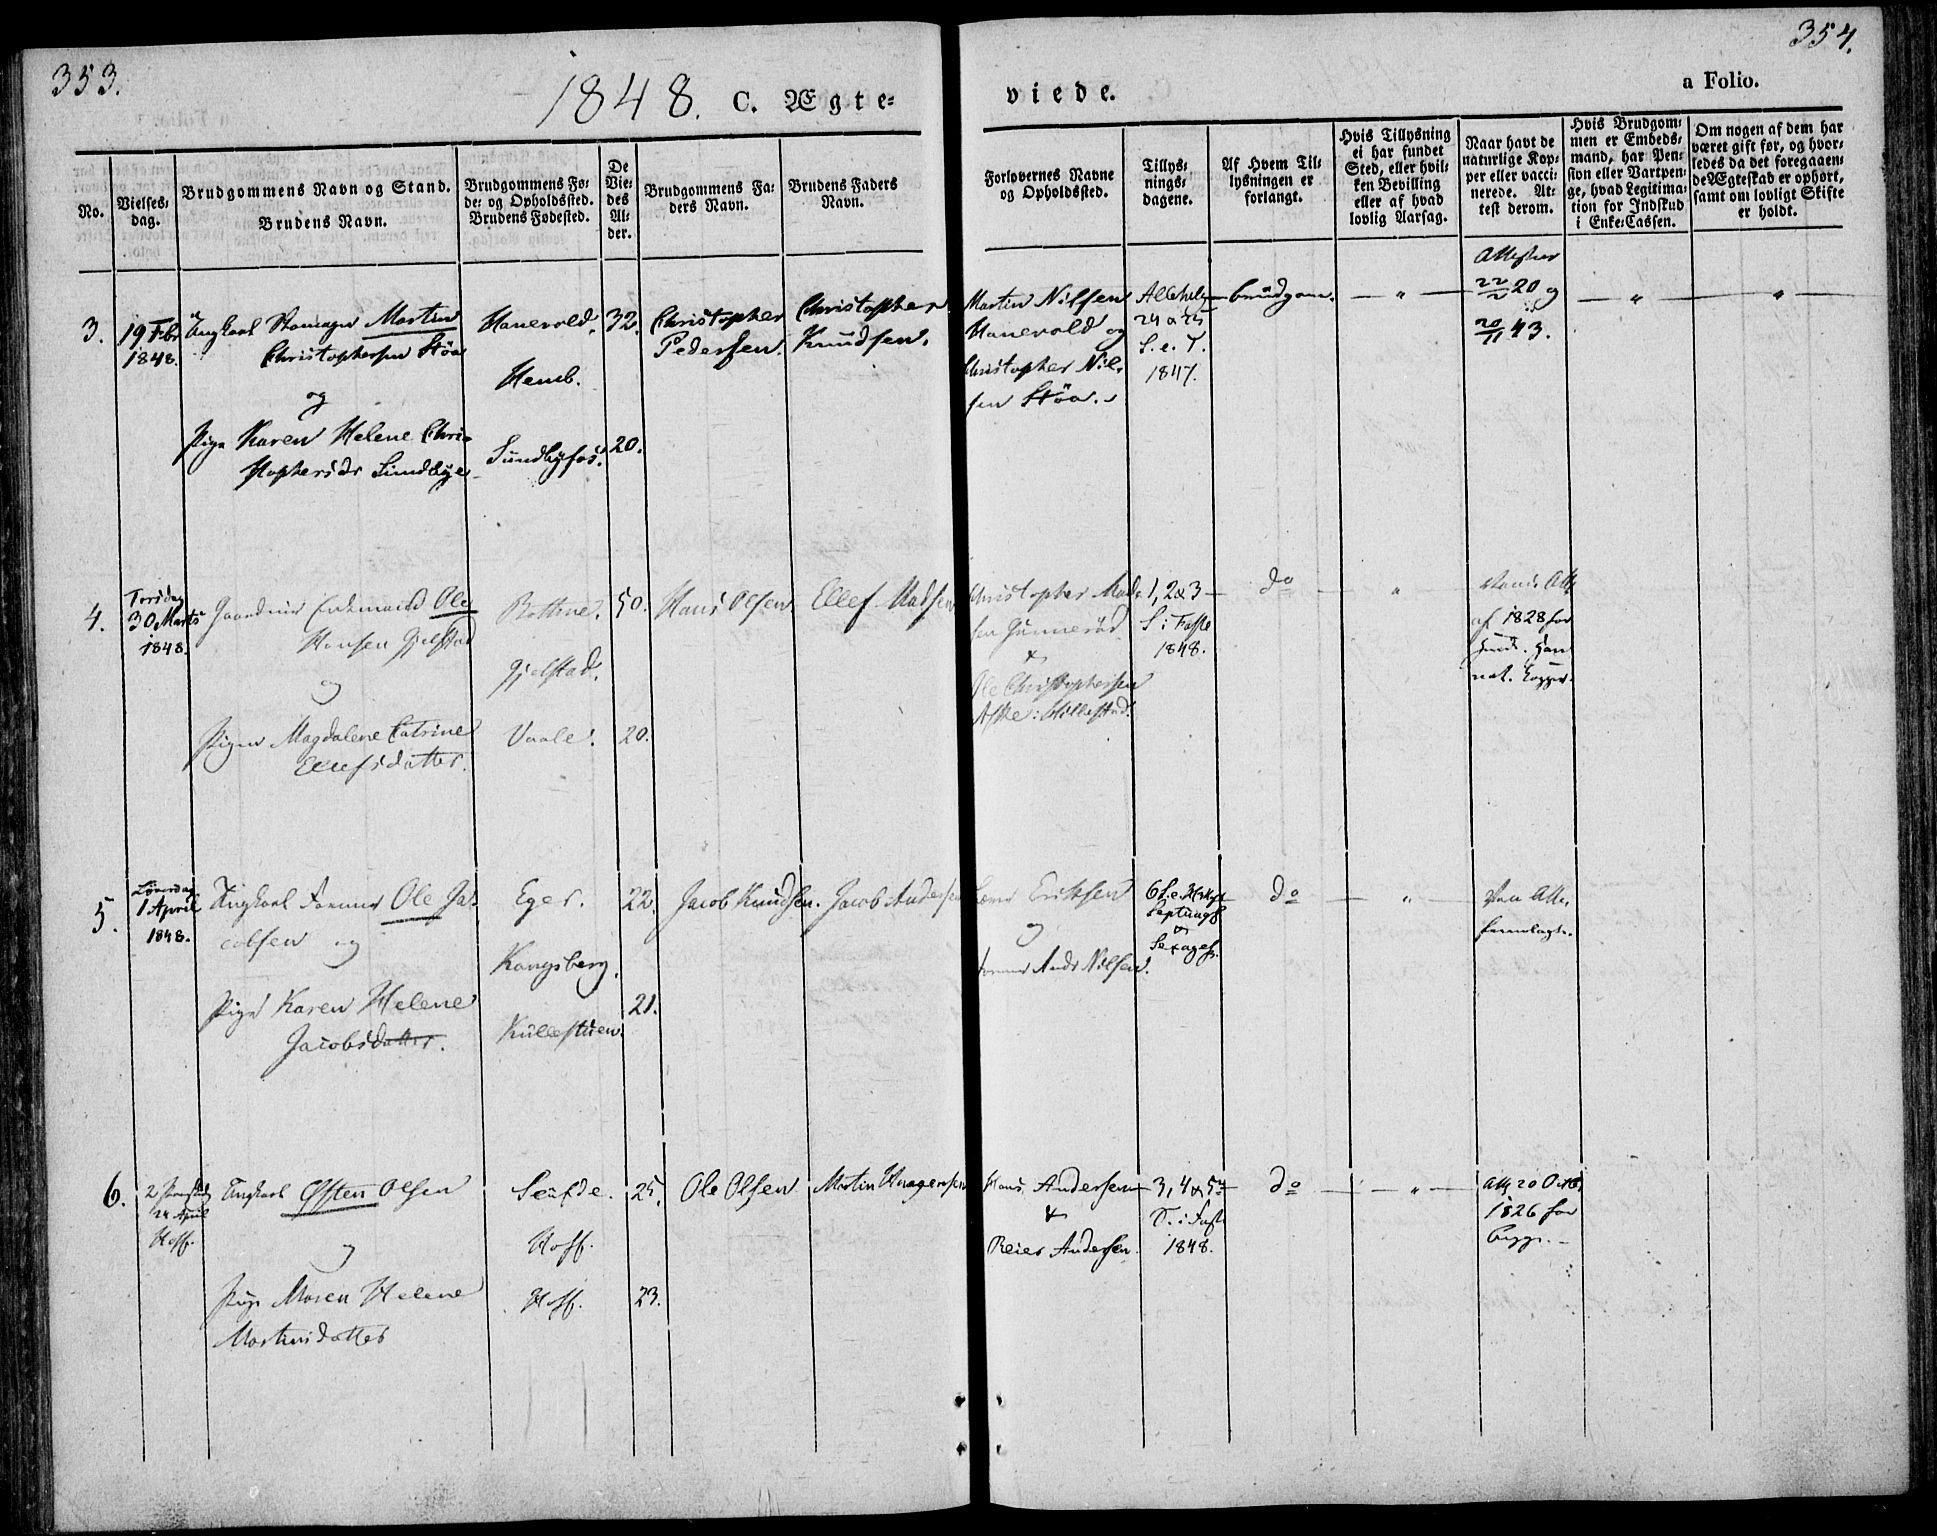 353.
354.
1848. C. Ægte=
viede.
a Folio.
No.
Vielses=
dag.
Brudgommens Navn og Stand.
Brudens Navn.
Brudgommens Fø=
de= og Opholdssted.
Brudens Fødested.
De
Vie=
des
Al=
der.
Brudgommens Fa=
ders Navn.
Brudens Faders
Navn.
Forlovernes Navne
og Opholdssted.
Tillys=
nings=
dagene.
Af Hvem Til=
lysningen er
forlangt.
Hvis Tillysning
ei har fundet
Sted, eller hvil=
ken Bevilling
eller af hvad
lovlig Aarsag.
Naar havt de
naturlige Kop=
per eller vacci=
nerede. At=
test derom.
Hvis Brudgom=
men er Embeds=
mand, har Pen=
sion eller Vartpen=
ge, hvad Legitima=
tion for Indskud
i Enke=Cassen.
Om nogen af dem har
været gift før, og hvor=
ledes da det foregaaen=
de Ægteskab er ophørt,
samt om lovligt Skifte
er holdt.
3.
19 Febr
1848.
Ungkarl Martin
Christophersen Støa
og
Pige Karen Helene Chri=
stophersdr Sundbye
Hanevold.
Hemb.
Sundbyfos.
32.
20.
Christopher
Pedersen.
Christopher
Knudsen.
Martin Nilsen
Hanevold og
Christopher Nil=
sen Støa.
24 & 25
S. e. T.
1847.
Brudgom.
— " —
Attester
22/2 20 og
20/11 43.
— " —
— " —
4.
Torsdag
30 Marts
1848.
Gaardmd Enkemand Ole
Hansen Gjelstad
og
Pigen Magdalene Catrine
Ellefsdatter.
Bothne.
Gjelstad.
Vaale.
50.
20.
Hans Olsen
Ellef Madsen
Christopher Mad=
sen Gunnerød
&
Ole Christophersen
Aske: Hillestad.
1, 2 & 3
S. i Faste
1848.
do
"
Att
af 1828 for
hende. Han
nat. Kopper.
5.
Løverdag
1 April
1848.
Ungkarl Former Ole Ja=
cobsen og
Pige Karen Helene
Jacobsdatter.
Eger.
Kongsberg.
Kullestuen.
22.
21.
Jacob Knudsen.
Jacob Andersen
Eriksen
og
Former Ands Nilsen.
6 S. e. H. 3 Kgr
Septuag.
&
Sexages.
do
— " —
Vac Att.
fremlagt.
6.
24 April
Hoff.
Ungkarl Østen Olsen
og
Pige Maren Helene
Martinsdatter
Hoff.
Hoff.
25.
23.
Ole Olsen
Martin Haagensen
Hans Andersen
&
Reier Andersen.
3, 4 & 5te
S. i Fast.
1848.
do
— " —
Att 20 Octb.
1826 for
begge.